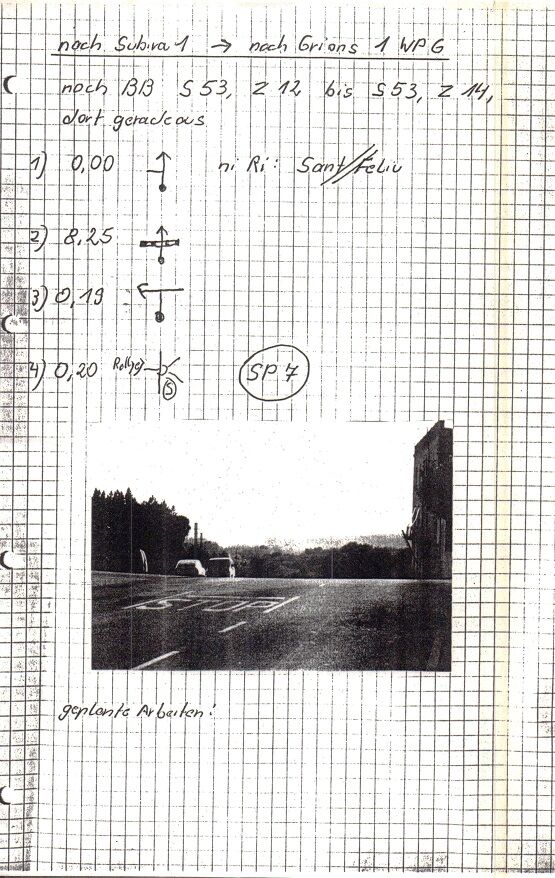 nach Subira 1 → nach Grions 1 WPG
nach BB S 53, Z 12 bis S 53, Z 14,
dort geradeaus
1) 0,00 ni Ri: Sant Feliu
2) 8,25
3) 0,19
4) 0,20 S SP 7
STOP
geplante Arbeiten: